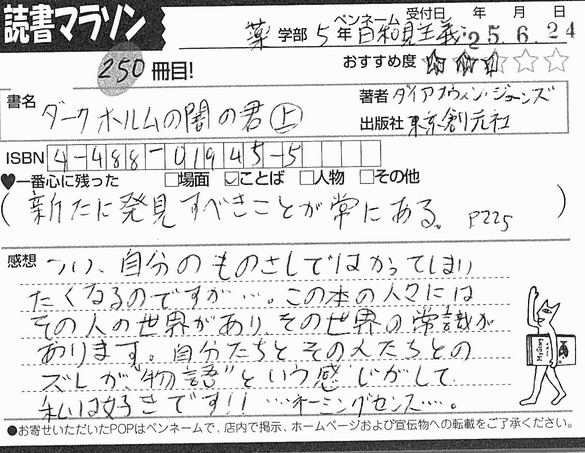 読書マラソン
ペンネーム 受付日 年 月 日
薬 学部 5 年 日和見主義 25.6.24
250 冊目!
おすすめ度
書名
ダークホルムの闇の君 上
著者 ダイアナ・ウィン・ジョーンズ
出版社 東京創元社
ISBN 4-488-01945-5
♥一番心に残った □場面 ☑ことば □人物 □その他
(新たに発見すべきことが常にある。 P225)
感想 つい、自分のものさしではかってしまい
たくなるのですが…。この本の人々には
その人の世界があり、その世界の常識が
あります。自分たちとその人たちとの
ズレが、"物語"という感じがして
私は好きです!! …ネーミングセンス…。
●お寄せいただいたPOPはペンネームで、店内で掲示、ホームページおよび宣伝物への転載をご了承ください。